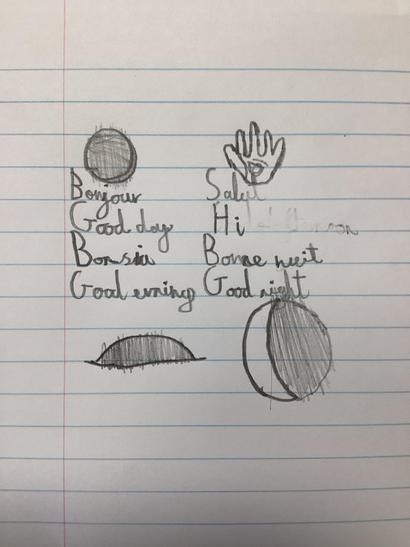 Bonjour
Good day
Bonsiu
Goool evning
Salut
Hi
Bonne nuit
Good night